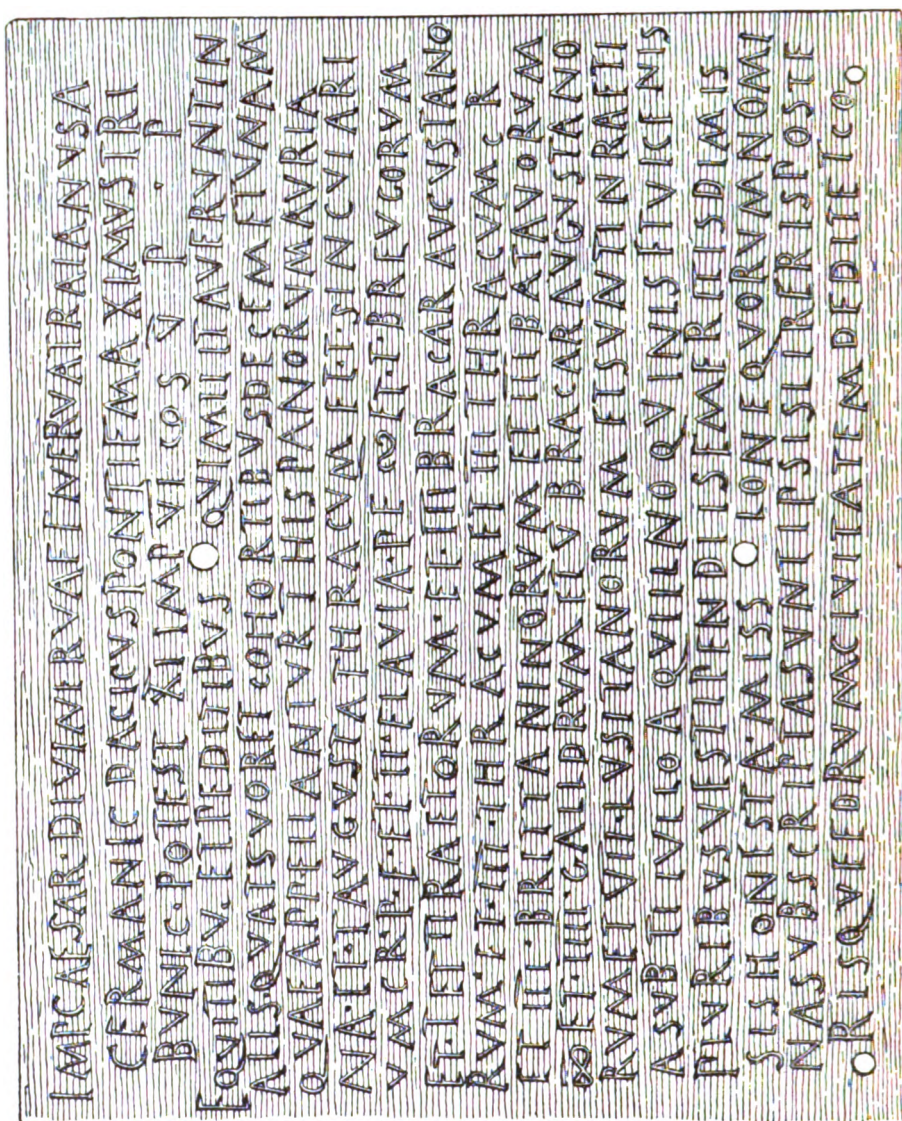 IMPCAESAR·DIVINERVAEFNERVATRAIANVSA
CERMANIC DACICVSPONTIFMAXIMVSTRI
BVNIC·POTEST XI IMP VI COS V P · P
EQVITIBV·ETPEDITIBVS QVIMILITAVERVNTIN
ALIS·QVATSVORET COHORTIBVSDECEMAETVNAM
QVAEAPPELLANTVR I HISPANORVMAVRIA
NA·ET·I·AVGVSTATHRACVM ET·I·SINCVLARI
VM CR·P·F·ET·II·FLAVIA·P·F ∞ ET·I·BREVCORVM
ET·I·ET II RAETORVM·ET·III BRACAR AVCVSTANO
RVM·ET·III·THRACVMETIII THRACVM C R
ET III·BRITTANNORVM ETIII BATAVORVM
∞ ET·IIII·GALLORVM ET V BRACARAVGVSTANO
RVMETVII·LVSITANORVM ETSVNTIN RAETI
ASVB TI IVLIOAQVILINO QVINIS ETVICENIS
PLVRIBVSVESTIPENDIISEMERITISDIMIS
SISHONESTA·MISSIONE QVORVMNOMI
NASVBSCRIPTASVNTIPSISLIBERISPOSTE
RISQVEEORVMCIVITATEMDEDITETCO